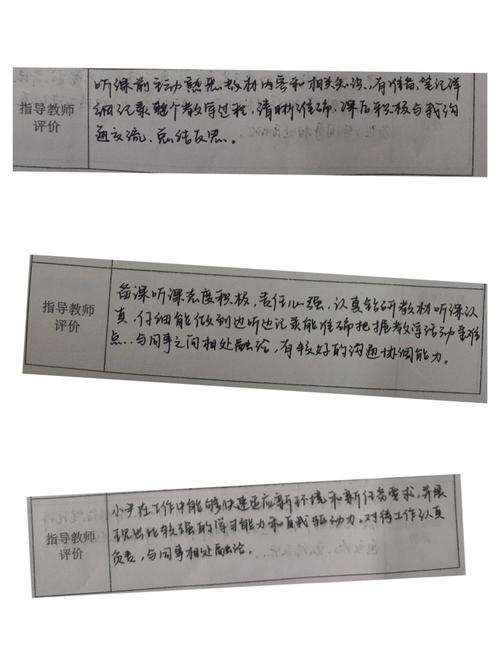 指导教师
评价
听课前主动熟悉教材内容和相关知识、有准备,笔记详
细记录整个教学过程,清晰准确,课后积极与我沟
通交流、总结反思。
指导教师
评价
每课听课态度积极,责任心强,认真钻研教材听课认
真,仔细能做到边听边记录能准确把握教学活动重难
点、与同事之间相处融洽,有较好的沟通协调能力。
指导教师
评价
小尹在工作中能够快速适应新环境和新任务需求,并展
现出比较强的学习能力和自我驱动力。对待工作认真
负责,与同事相处融洽。